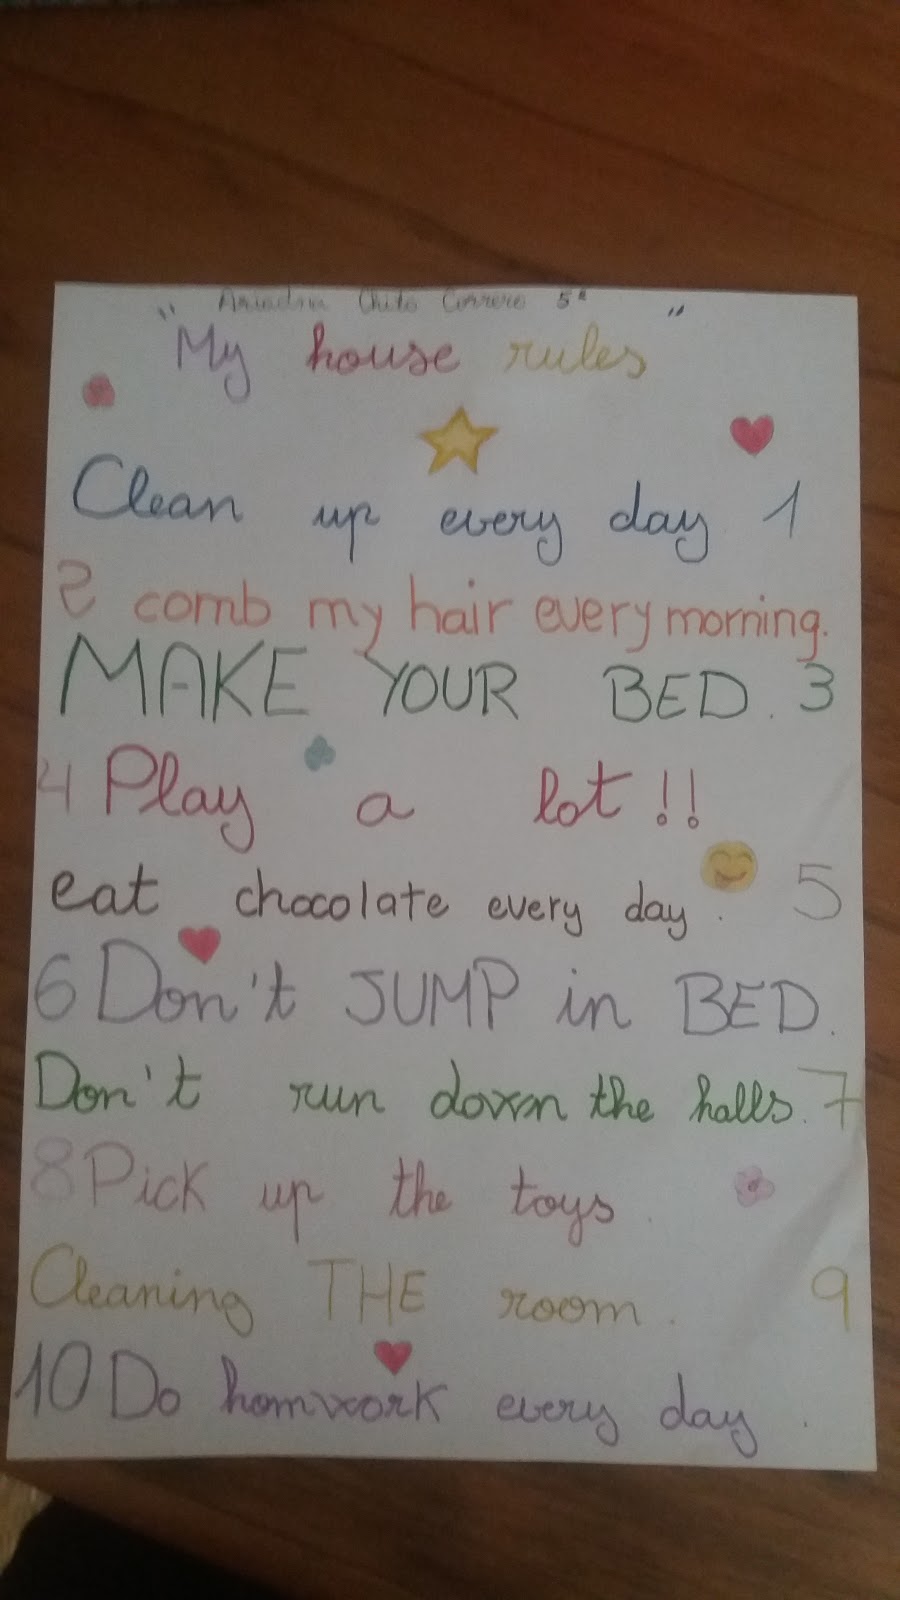 Chito 5º
"My house rules"
Clean up every day 1
2 comb my hair every morning.
MAKE YOUR BED. 3
4 Play a lot!!
eat chocolate every day. 5
6 Don't JUMP in BED.
Don't run down the halls. 7
8 Pick up the toys.
Cleaning THE room. 9
10 Do homwork every day.